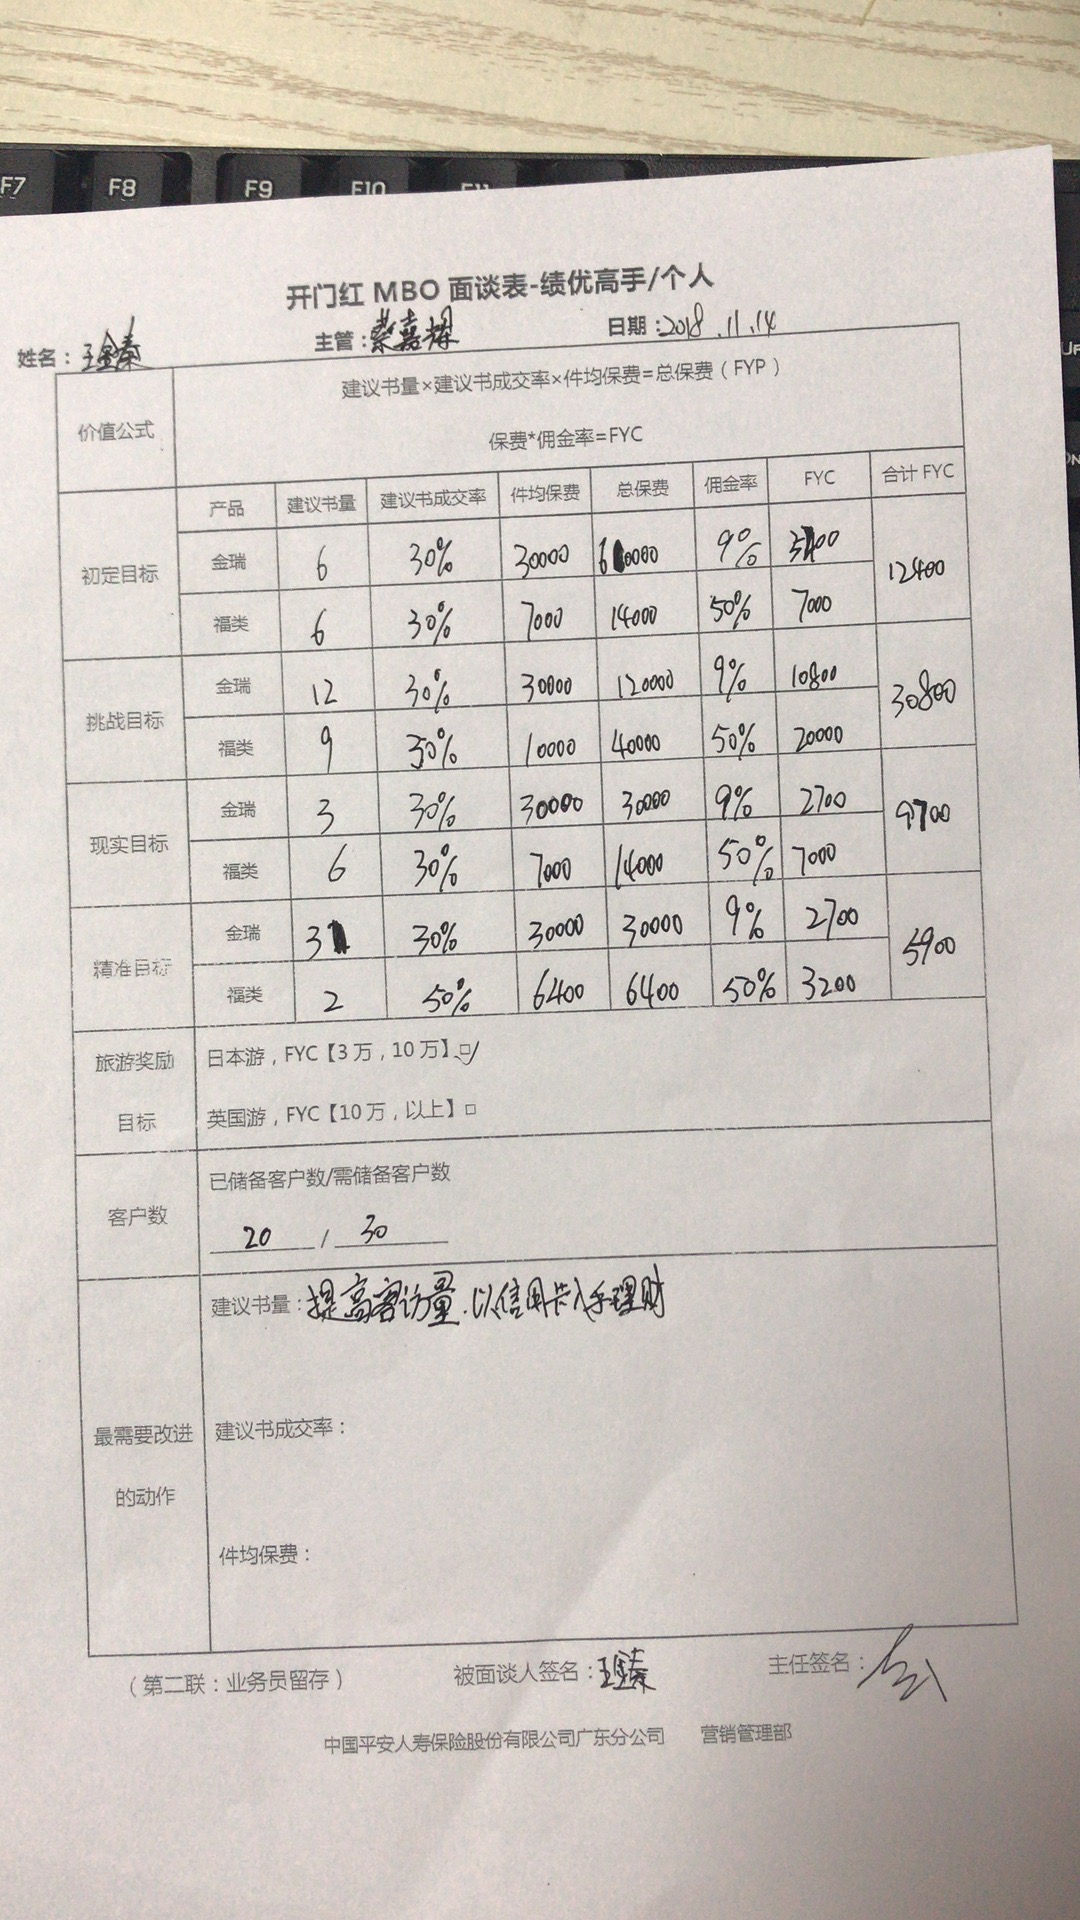 F7 F8 F9 F10 F11
开门红 MBO 面谈表-绩优高手/个人
姓名： 主管：蔡嘉 日期：2018.11.14
价值公式
建议书量×建议书成交率×件均保费=总保费（FYP）
保费*佣金率=FYC
产品 建议书量 建议书成交率 件均保费 总保费 佣金率 FYC 合计 FYC
初定目标
金瑞 6 30% 30000 60000 9% 5400
12400
福类 6 30% 7000 14000 50% 7000
挑战目标
金瑞 12 30% 30000 120000 9% 10800
30800
福类 9 50% 10000 40000 50% 20000
现实目标
金瑞 3 30% 30000 30000 9% 2700
9700
福类 6 30% 7000 14000 50% 7000
精准目标
金瑞 3 30% 30000 30000 9% 2700
5900
福类 2 50% 6400 6400 50% 3200
旅游奖励
目标
日本游，FYC【3万，10万】☑
英国游，FYC【10万，以上】□
客户数
已储备客户数/需储备客户数
20 / 30
最需要改进
的动作
建议书量：提高客访量.以信用卡入手理财
建议书成交率：
件均保费：
（第二联：业务员留存） 被面谈人签名： 主任签名：
中国平安人寿保险股份有限公司广东分公司 营销管理部